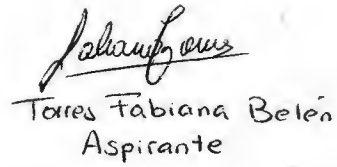 Torres Fabiana Belén
Aspirante